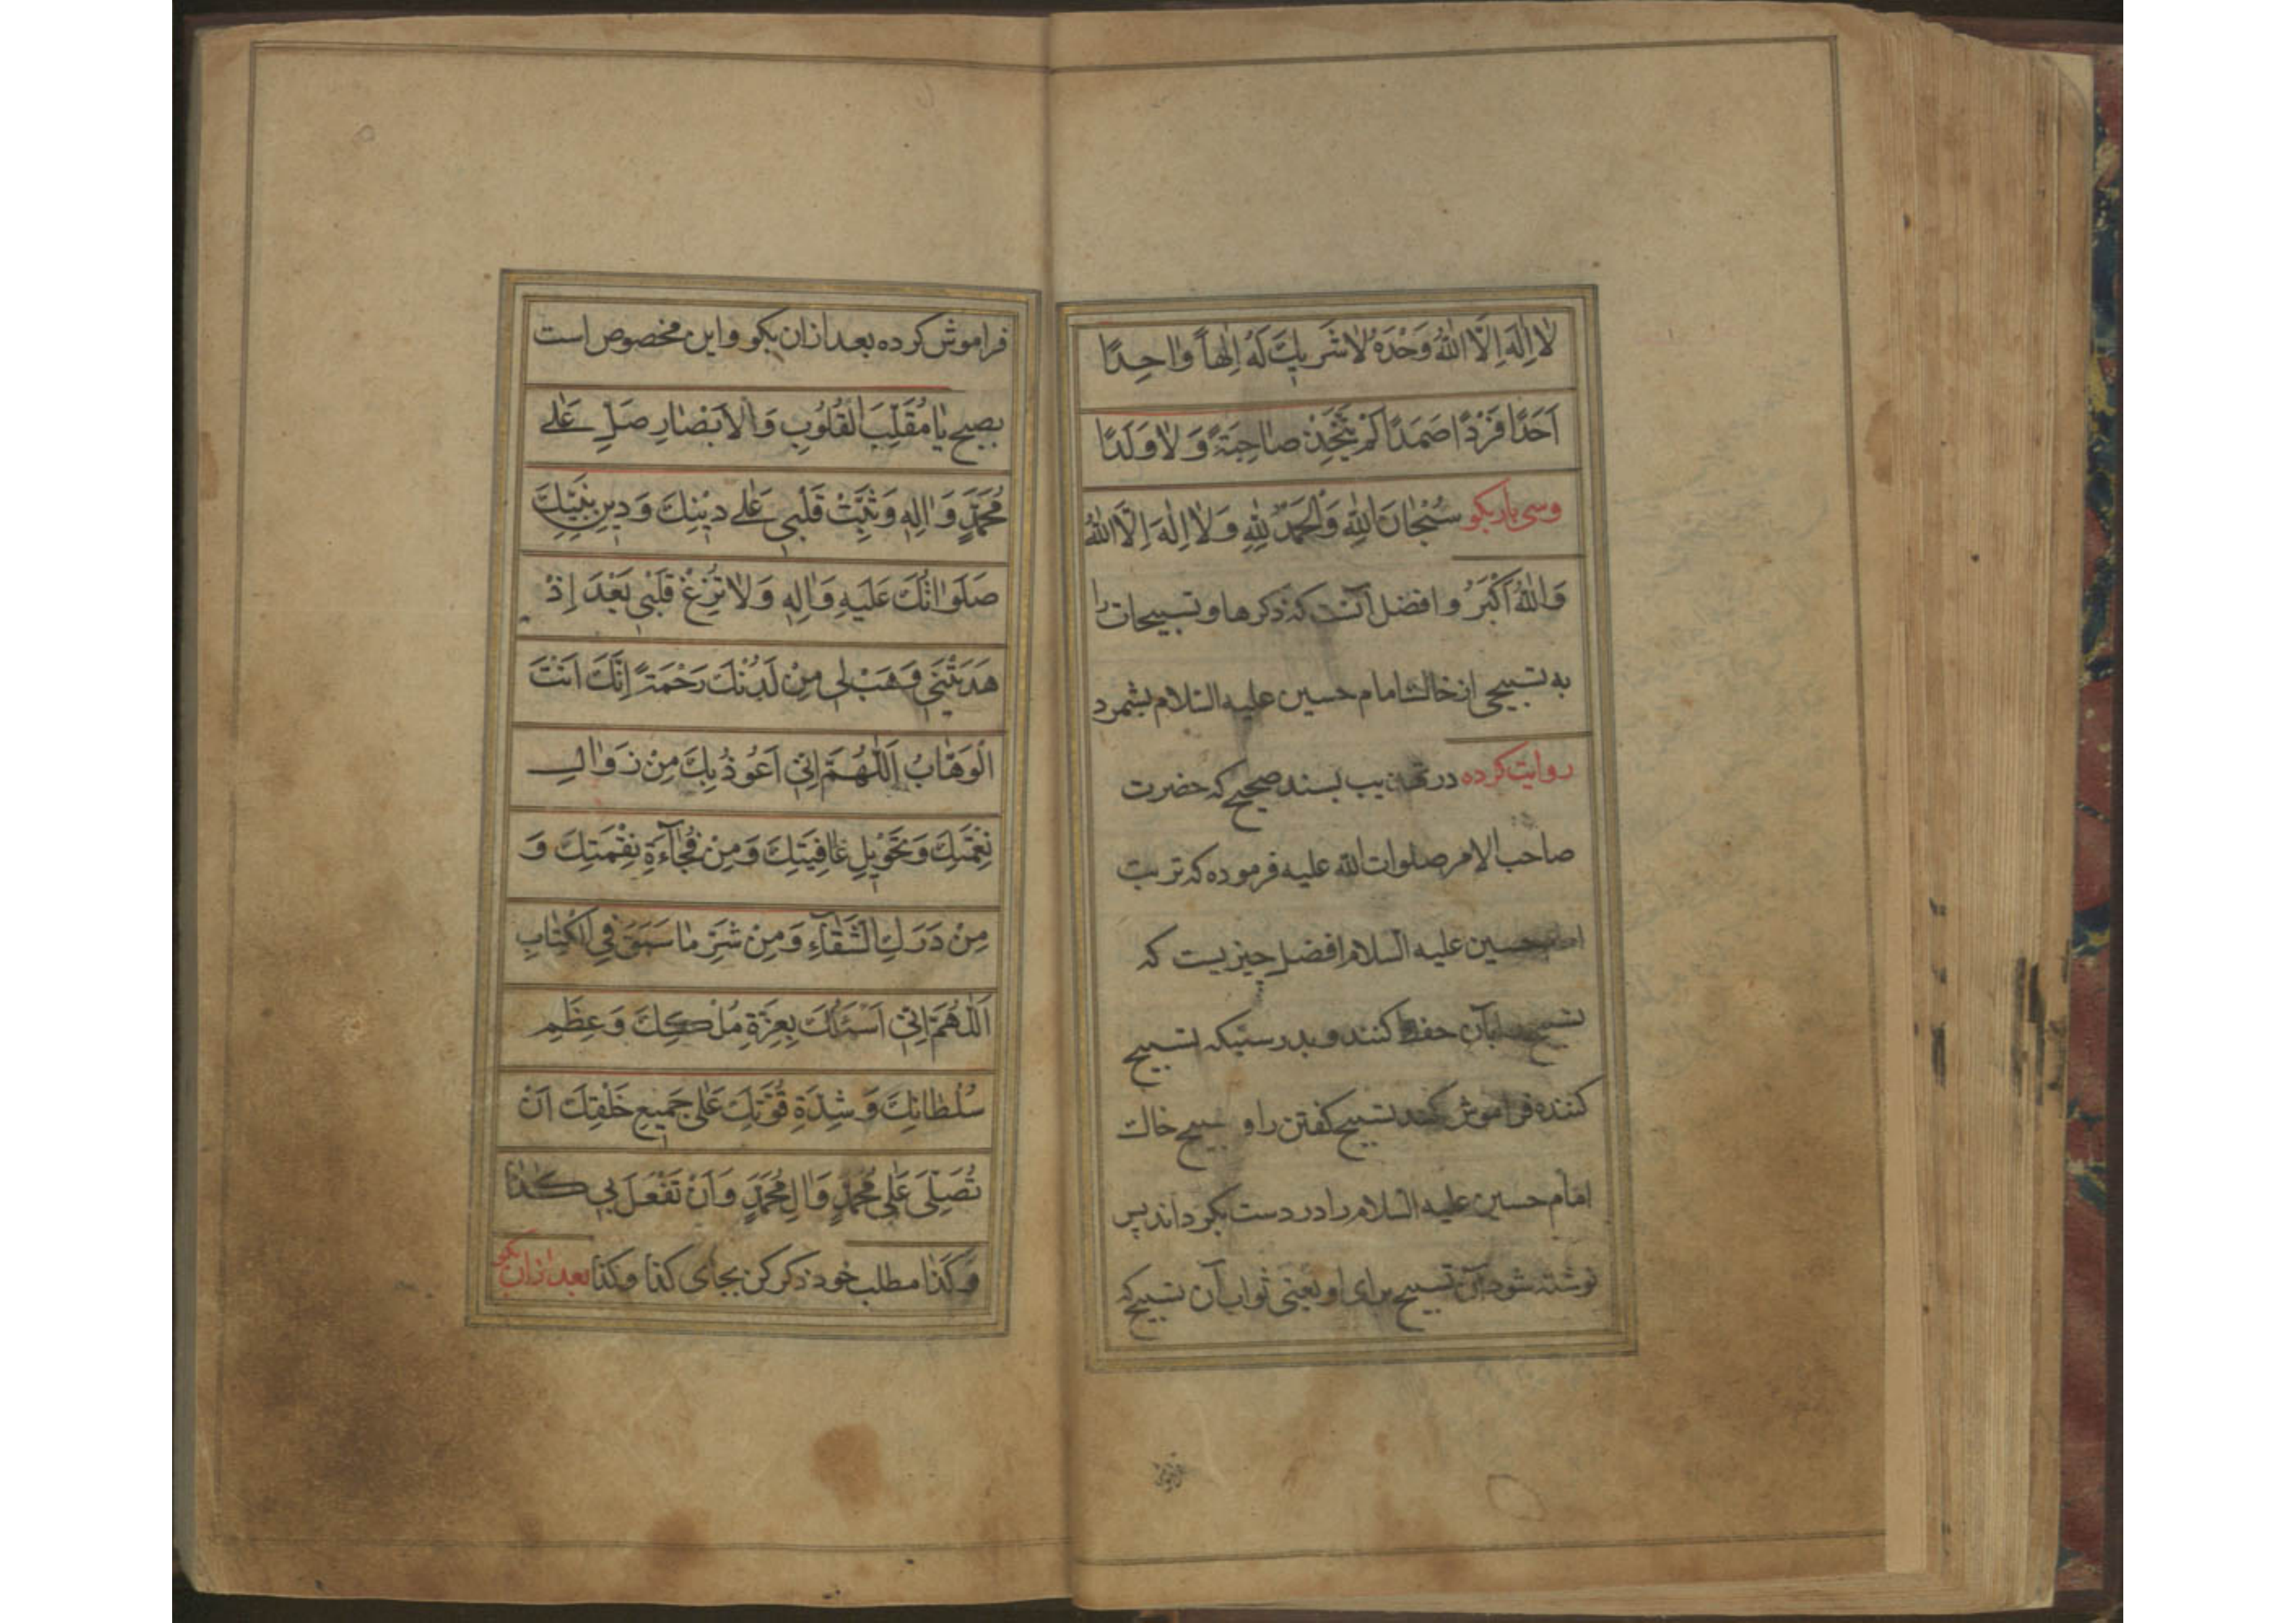 لَا اِلٰهَ اِلَّا اللّٰهُ وَحْدَهُ لَا شَرِيكَ لَهُ اِلٰهاً وَاحِدًا
اَحَدًا فَرْدًا صَمَدًا لَمْ يَتَّخِذْ صَاحِبَةً وَلَا وَلَدًا
وسی بار بکو سُبْحَانَ اللّٰهِ وَالْحَمْدُ لِلّٰهِ وَلَا اِلٰهَ اِلَّا اللّٰهُ
وَاللّٰهُ اَكْبَرُ و افضل آنست که ذکرها و تسبیحات را
به تسبیحی از خاک امام حسین علیه السلام بشمرد
روایت کرده در تهذیب بسند صحیح که حضرت
صاحب الامر صلوات الله علیه فرموده که تربت
امام حسین علیه السلام افضل چیزیست که
تسبیح را بآن حفظ کنند و بدرستیکه تسبیح
کننده فراموش کند تسبیح کفتن را و تسبیح خاک
امام حسین علیه السلام را در دست بکرداند پس
نوشته شود آن تسبیح برای او یعنی ثواب آن تسبیح که
فراموش کرده بعد از ان بکو و این مخصوص است
بصبح يَا مُقَلِّبَ الْقُلُوبِ وَالْاَبْصَارِ صَلِّ عَلٰى
مُحَمَّدٍ وَاٰلِهِ وَثَبِّتْ قَلْبِي عَلٰى دِينِكَ وَدِينِ نَبِيِّكَ
صَلَوَاتُكَ عَلَيْهِ وَاٰلِهِ وَلَا تُزِغْ قَلْبِي بَعْدَ اِذْ
هَدَيْتَنِي وَهَبْ لِي مِنْ لَدُنْكَ رَحْمَةً اِنَّكَ اَنْتَ
الْوَهَّابُ اَللّٰهُمَّ اِنِّي اَعُوذُ بِكَ مِنْ زَوَالِ
نِعْمَتِكَ وَتَحْوِيلِ عَافِيَتِكَ وَمِنْ فُجَآءَةِ نِقْمَتِكَ وَ
مِنْ دَرَكِ الشَّقَآءِ وَمِنْ شَرِّ مَا سَبَقَ فِي الْكِتَابِ
اَللّٰهُمَّ اِنِّي اَسْئَلُكَ بِعِزَّةِ مُلْكِكَ وَعِظَمِ
سُلْطَانِكَ وَشِدَّةِ قُوَّتِكَ عَلٰى جَمِيعِ خَلْقِكَ اَنْ
تُصَلِّيَ عَلٰى مُحَمَّدٍ وَاٰلِ مُحَمَّدٍ وَاَنْ تَفْعَلَ بِي كَذَا
وَكَذَا مطلب خود ذکر کن بجای کذا و کذا بعد از ان بکو